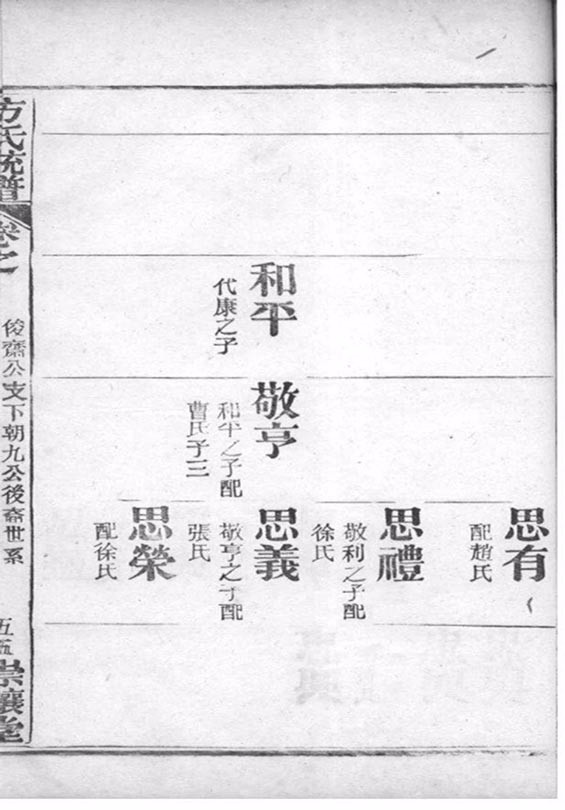 和平
代康之子
敬亨
和平之子配
曹氏子三
思有
配趙氏
思禮
敬利之子配
徐氏
思義
敬亨之子配
張氏
思榮
配徐氏
方氏統譜
卷之
俊齋公支下朝九公後裔世系
五五
崇讓堂